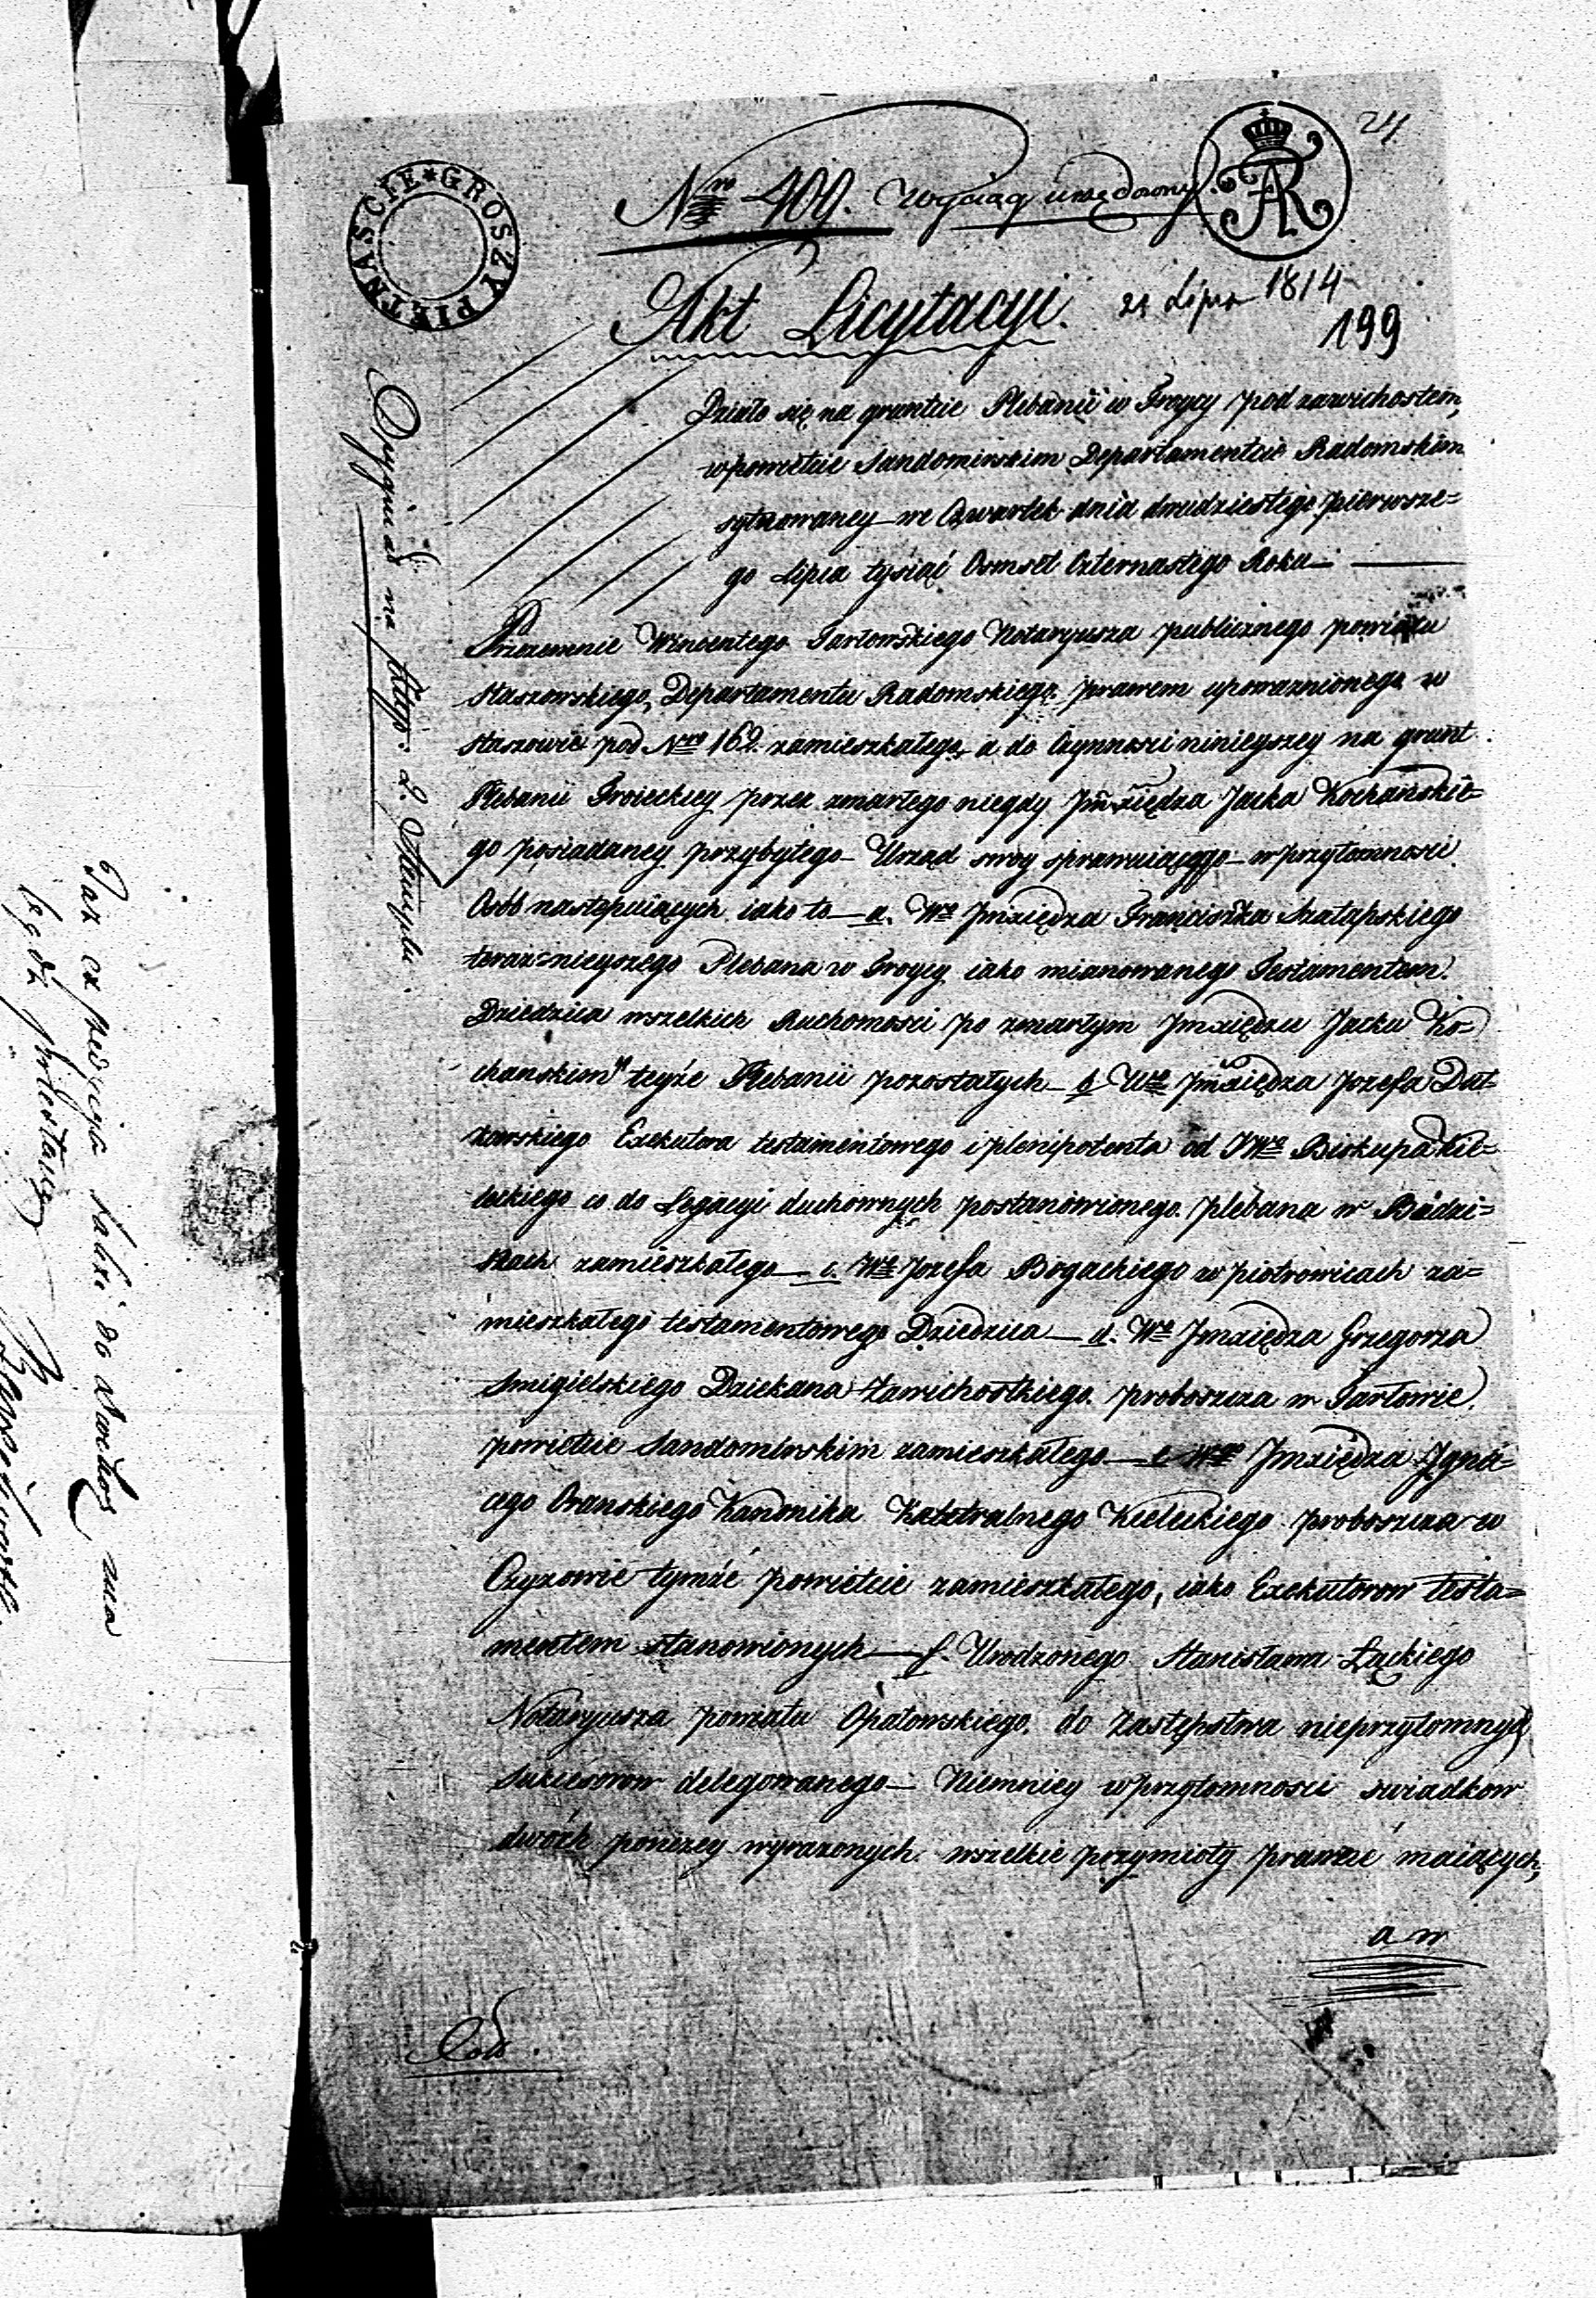 24
PIĘTNAŚCIE * GROSZY
Nro 409. Wyciąg urzędowy.
Akt Licytacyi.
21 Lipca 1814
199
Działo się na gruncie Plebanii w Troycy pod zawichostem,
w powiecie Sandomirskim Departamencie Radomskim
sytuowaney we Czwartek dnia dwudziestego pierwsze=
go Lipca tysiąć Osmset Czternastego Roku —
Przezemnie Wincentego Tarłowskiego Notaryusza publicznego powiatu
Staszowskiego, Departamentu Radomskiego. prawem upoważnionego w
Staszowie pod Nro 162. zamieszkałego, a do Czynnosci ninieyszey na grunt
Plebanii Troieckiey przez zmarłego niegdy Jmxiędza Jacka Kochanskie=
go posiadaney przybyłego — Urząd swoy sprawuiącego — w przytomnosci
Osób następuiących iako to — a. Wo Jmxiędza Franciszka Szałapskiego
teraznieyszego Plebana w Troycy iako mianowanego Testamentem.
Dziedzica wszelkich Ruchomosci po zmarłym Jmxiędzu Jacku Ko=
chanskim teyże Plebanii pozostałych — b Wo Jmxiędza Jozefa Dut=
kowskiego Exekutora testamentowego i plenipotenta od JWo Biskupa Kie=
leckiego co do Legacyi duchownych postanowionego. plebana w
zamieszkałego — c. Wo Jozefa Bogackiego w piotrowicach za=
mieszkałego testamentowego Dziedzica — d. Wo Jmxiędza Grzegorza
Smigielskiego Dziekana Zawichostkiego. proboszcza w Tarłowie.
powiecie Sandomirskim zamieszkałego — e Wgo Jmxiędza Ignа=
cego Oranskiego Kanonika Katetralnego Kieleckiego. proboszcza w
Czyzowie tymże powiecie zamieszkałego, iako Exekutorow testa=
mentem stanowionych — f. Urodzonego Stanisława Łąckiego
Notaryusza powiatu Opatowskiego. do Zastępstwa nieprzytomnych
Sukcesorow delegowanego — Niemniey w przytomnosci swiadkow
dwóch ponizey wyrazonych. wszelkie przymioty prawne maiących,
a w
Oryginał na